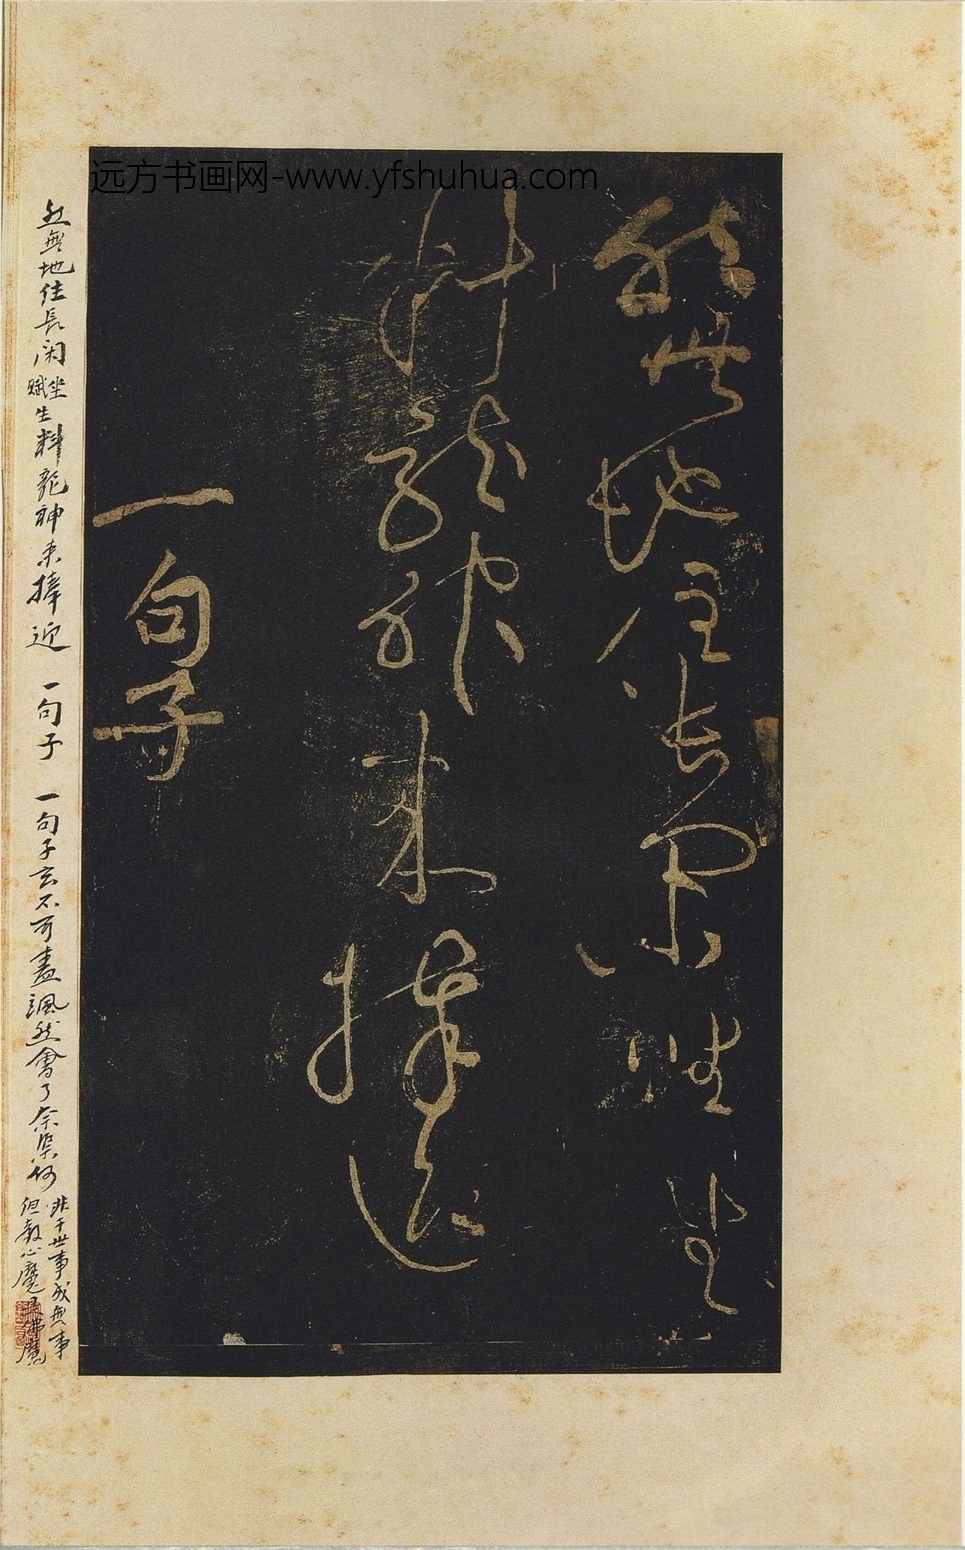 远方书画网-www.yfshuhua.com
然無地住長閑坐
料龍神来捧迎
一句子
無地住長閑坐
生料龍神来捧迎 一句子 一句子玄不可盡颯然會了奈渠何
非干世事成無事
但教心魔是佛魔